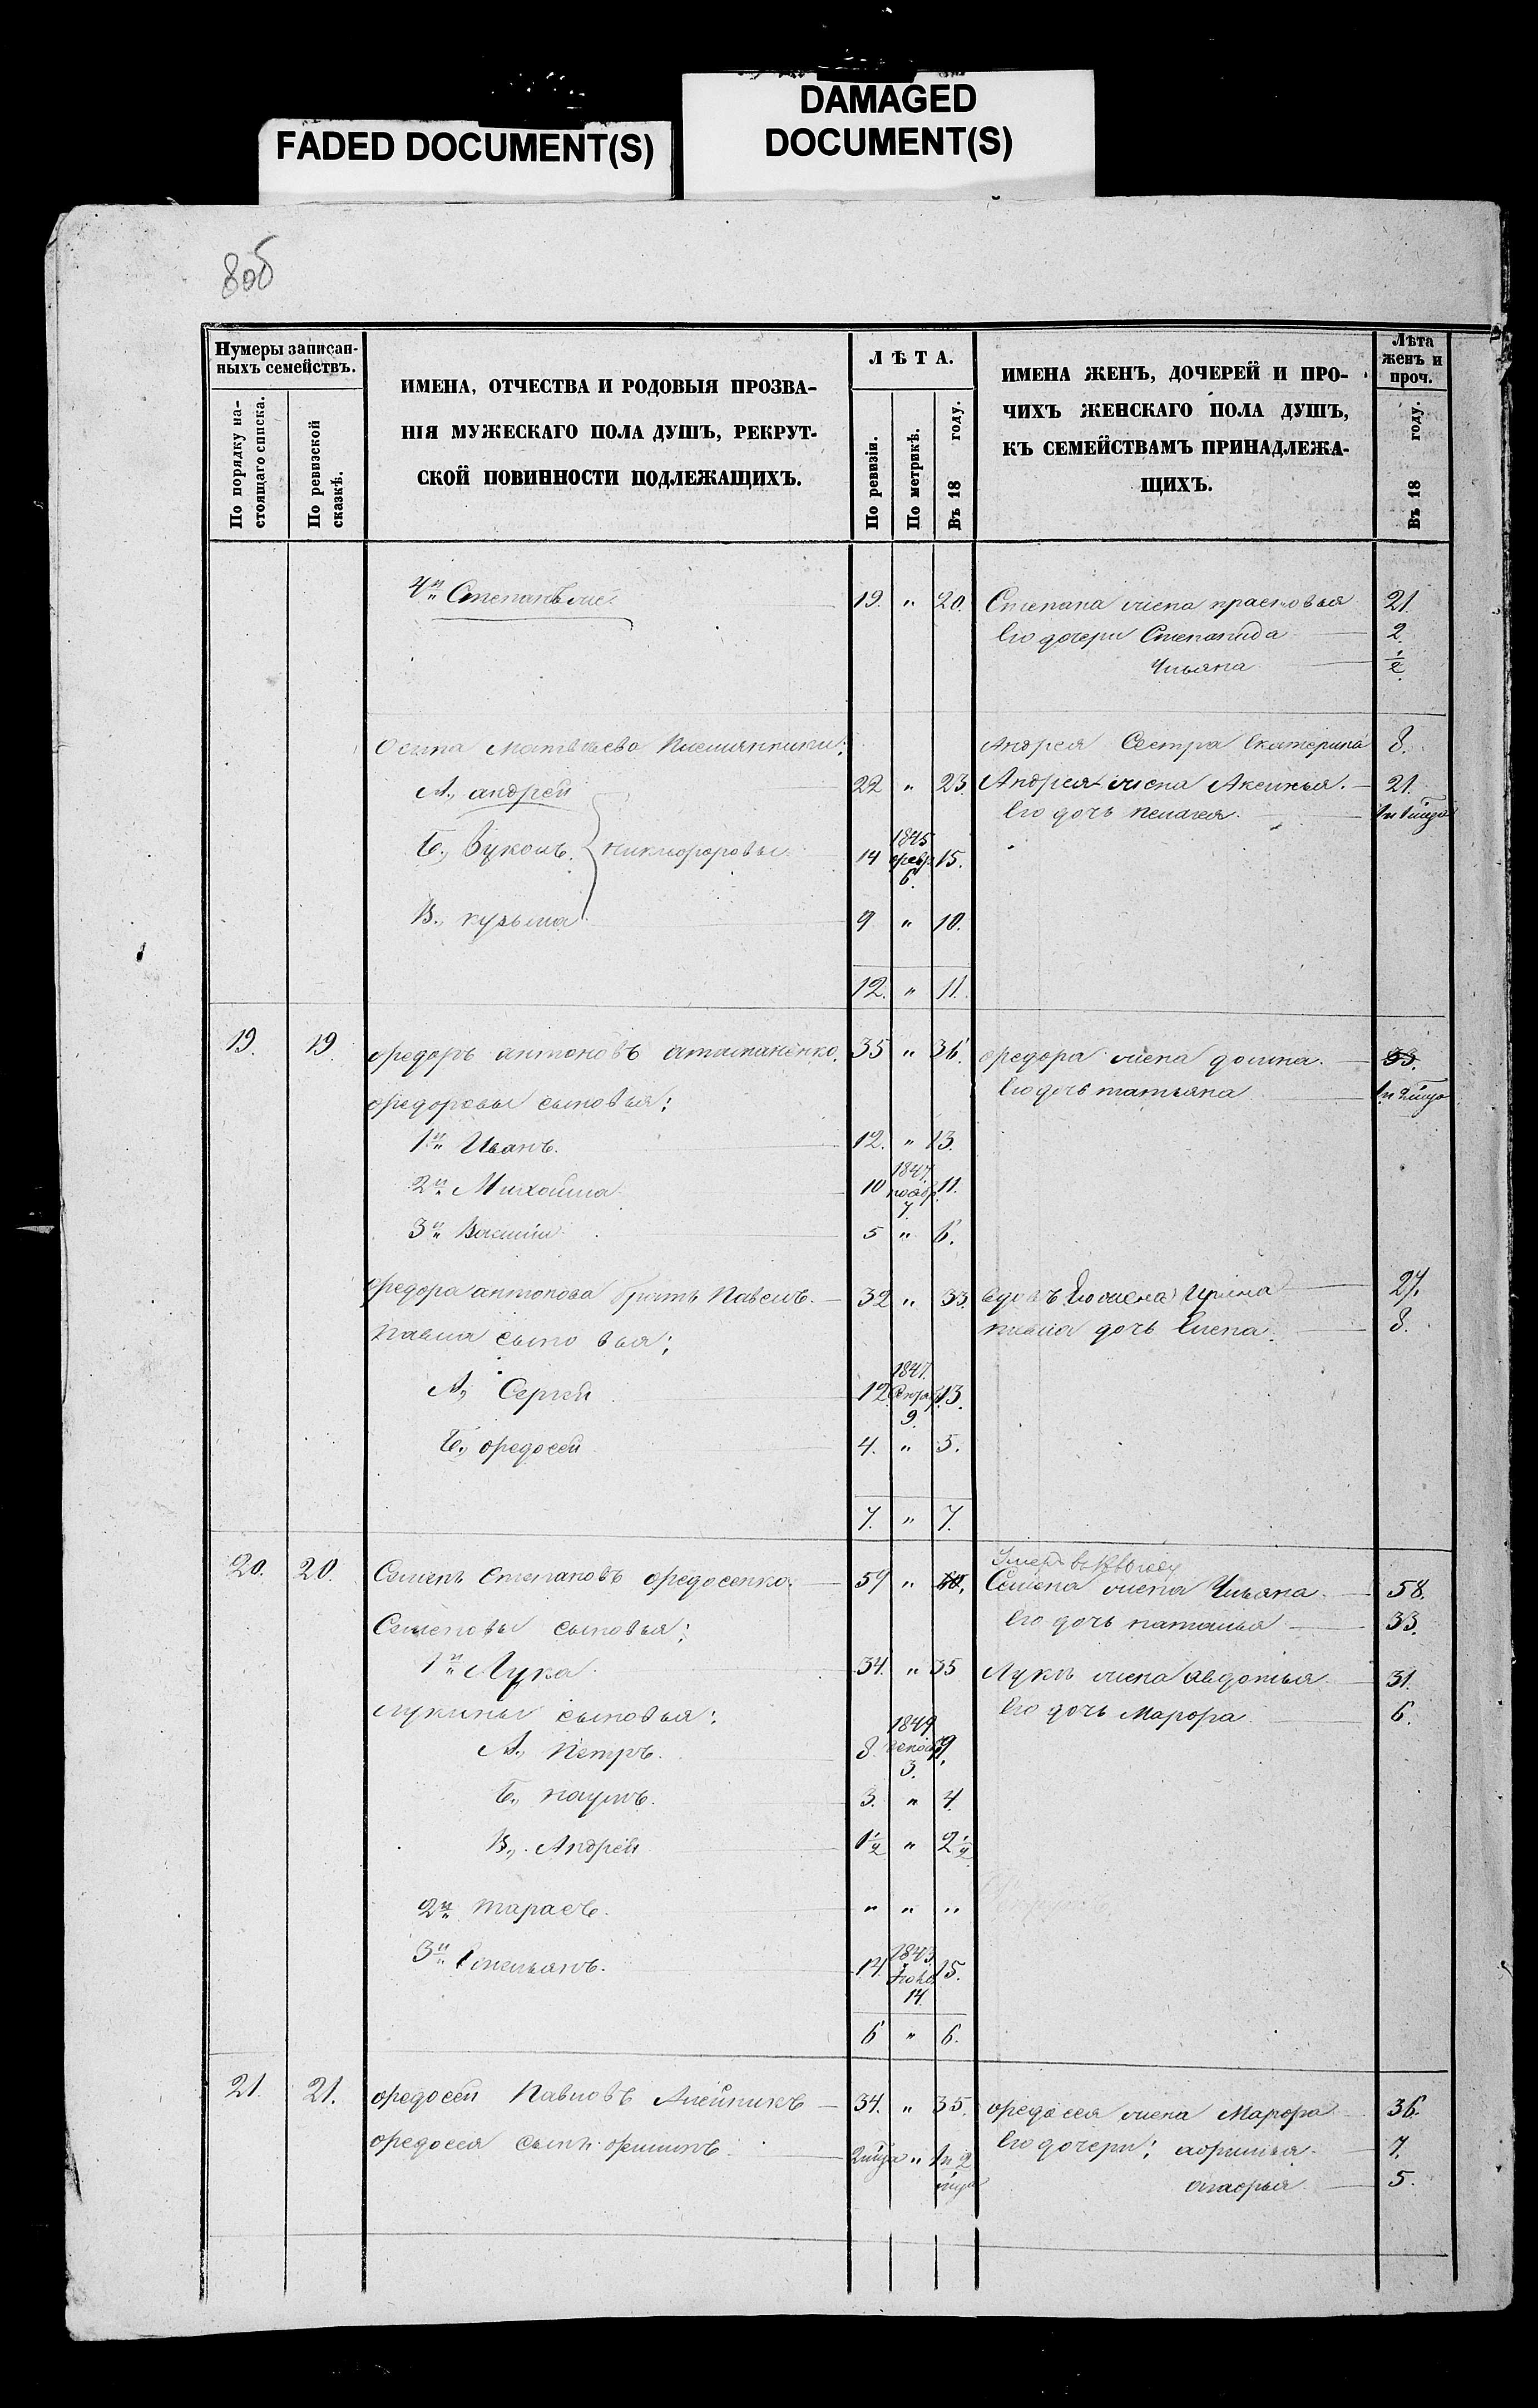 FADED DOCUMENT(S)
DAMAGED
DOCUMENT(S)
80б
Нумеры записан-
ныхъ семействъ.
По порядку на-
стоящаго списка.
По ревизской
сказкѣ.
ИМЕНА, ОТЧЕСТВА И РОДОВЫЯ ПРОЗВА-
НІЯ МУЖЕСКАГО ПОЛА ДУШЪ, РЕКРУТ-
СКОЙ ПОВИННОСТИ ПОДЛЕЖАЩИХЪ.
ЛѢТА.
По ревизіи.
По метрикѣ.
Въ 18 году.
ИМЕНА ЖЕНЪ, ДОЧЕРЕЙ И ПРО-
ЧИХЪ ЖЕНСКАГО ПОЛА ДУШЪ,
КЪ СЕМЕЙСТВАМЪ ПРИНАДЛЕЖА-
ЩИХЪ.
Лѣта
женъ и
проч.
Въ 18 году.
4й Степанъ 19. " 20. Степана жена прасковья 21.
Его дочери Степанида 2.
Ульяна ½
Осипа Матвѣева Племянники: Андрея Сестра Екатерина 8.
А., андрей 22 " 23. Андрея жена Аксинья. 21.
Его дочь пелагея.
Б., Вуколъ. никифоровы 14 1845 февр. 6. 15.
В., кузьма 9 " 10.
12. " 11.
19. 19. Федоръ антоновъ 35 " 36. Федора жена домна. 33.
Федоровы сыновья: Его дочь татьяна
1й Иванъ. 12. " 13.
2й Михайла 10 1847 ноябр. 7 11.
3й Василій 5 " 6.
Федора антонова братъ Павелъ. 32 " 33. вдовъ Его жена Ирина 27.
Павла сыновья: павла дочь Елена. 8.
А., Сергей 12 1847. 9. 13.
Б., Федосей 4. " 5.
7. " 7.
20. 20. Семенъ Степановъ Федосенко. 59 " Семена жена Ульяна. 58.
Семеновы сыновья: Его дочь наталья 33.
1й Лука. 34. " 35 Луки жена авдотья 31.
Лукины сыновья: Его дочь Марфа 6.
А., Петръ. 8. 1849 3. 9.
Б., наумъ. 3. " 4.
В., Андрей 1½ " 2½
2й тарасъ. " " "
3й Емельянъ. 14. 1843. 14. 15.
6 " 6.
21. 21. Федосей Павловъ Алейникъ 34. " 35. Федосея жена Марфа 36.
Федосея сынъ филипъ Его дочери: афимья. 7.
агафья. 5.